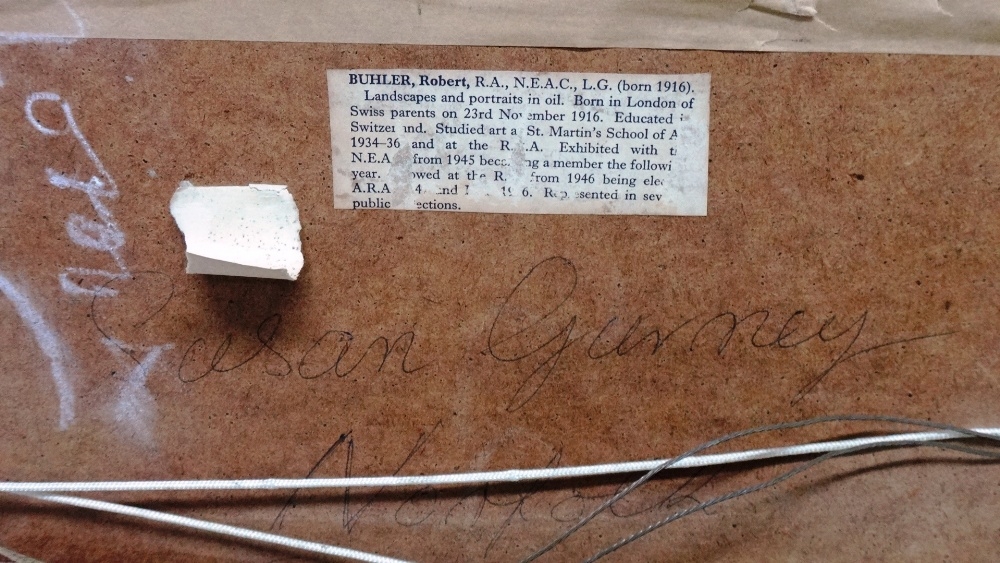 BUHLER, Robert, R.A., N.E.A.C., L.G. (born 1916).
Landscapes and portraits in oil. Born in London of
Swiss parents on 23rd November 1916. Educated
Studied art a St. Martin's School of A
1934–36 and at the R. .A. Exhibited with
N.E.A from 1945 a member the followi
year. owed at the R. from 1946 being
A.R.A 6. in sev
public ections.
Susan Gurney
Norfolk